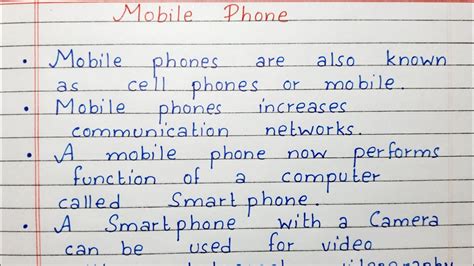 Mobile Phone
• Mobile phones are also known
as cell phones or mobile.
• Mobile phones increases
communication networks.
• A mobile phone now performs
function of a computer
called Smart phone.
• A Smartphone with a Camera
can be used for video